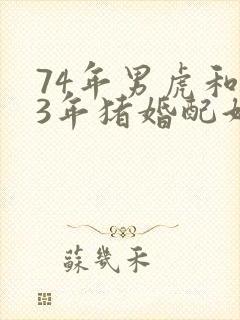 74年男虎和
3年猪婚配如
蘇幾禾